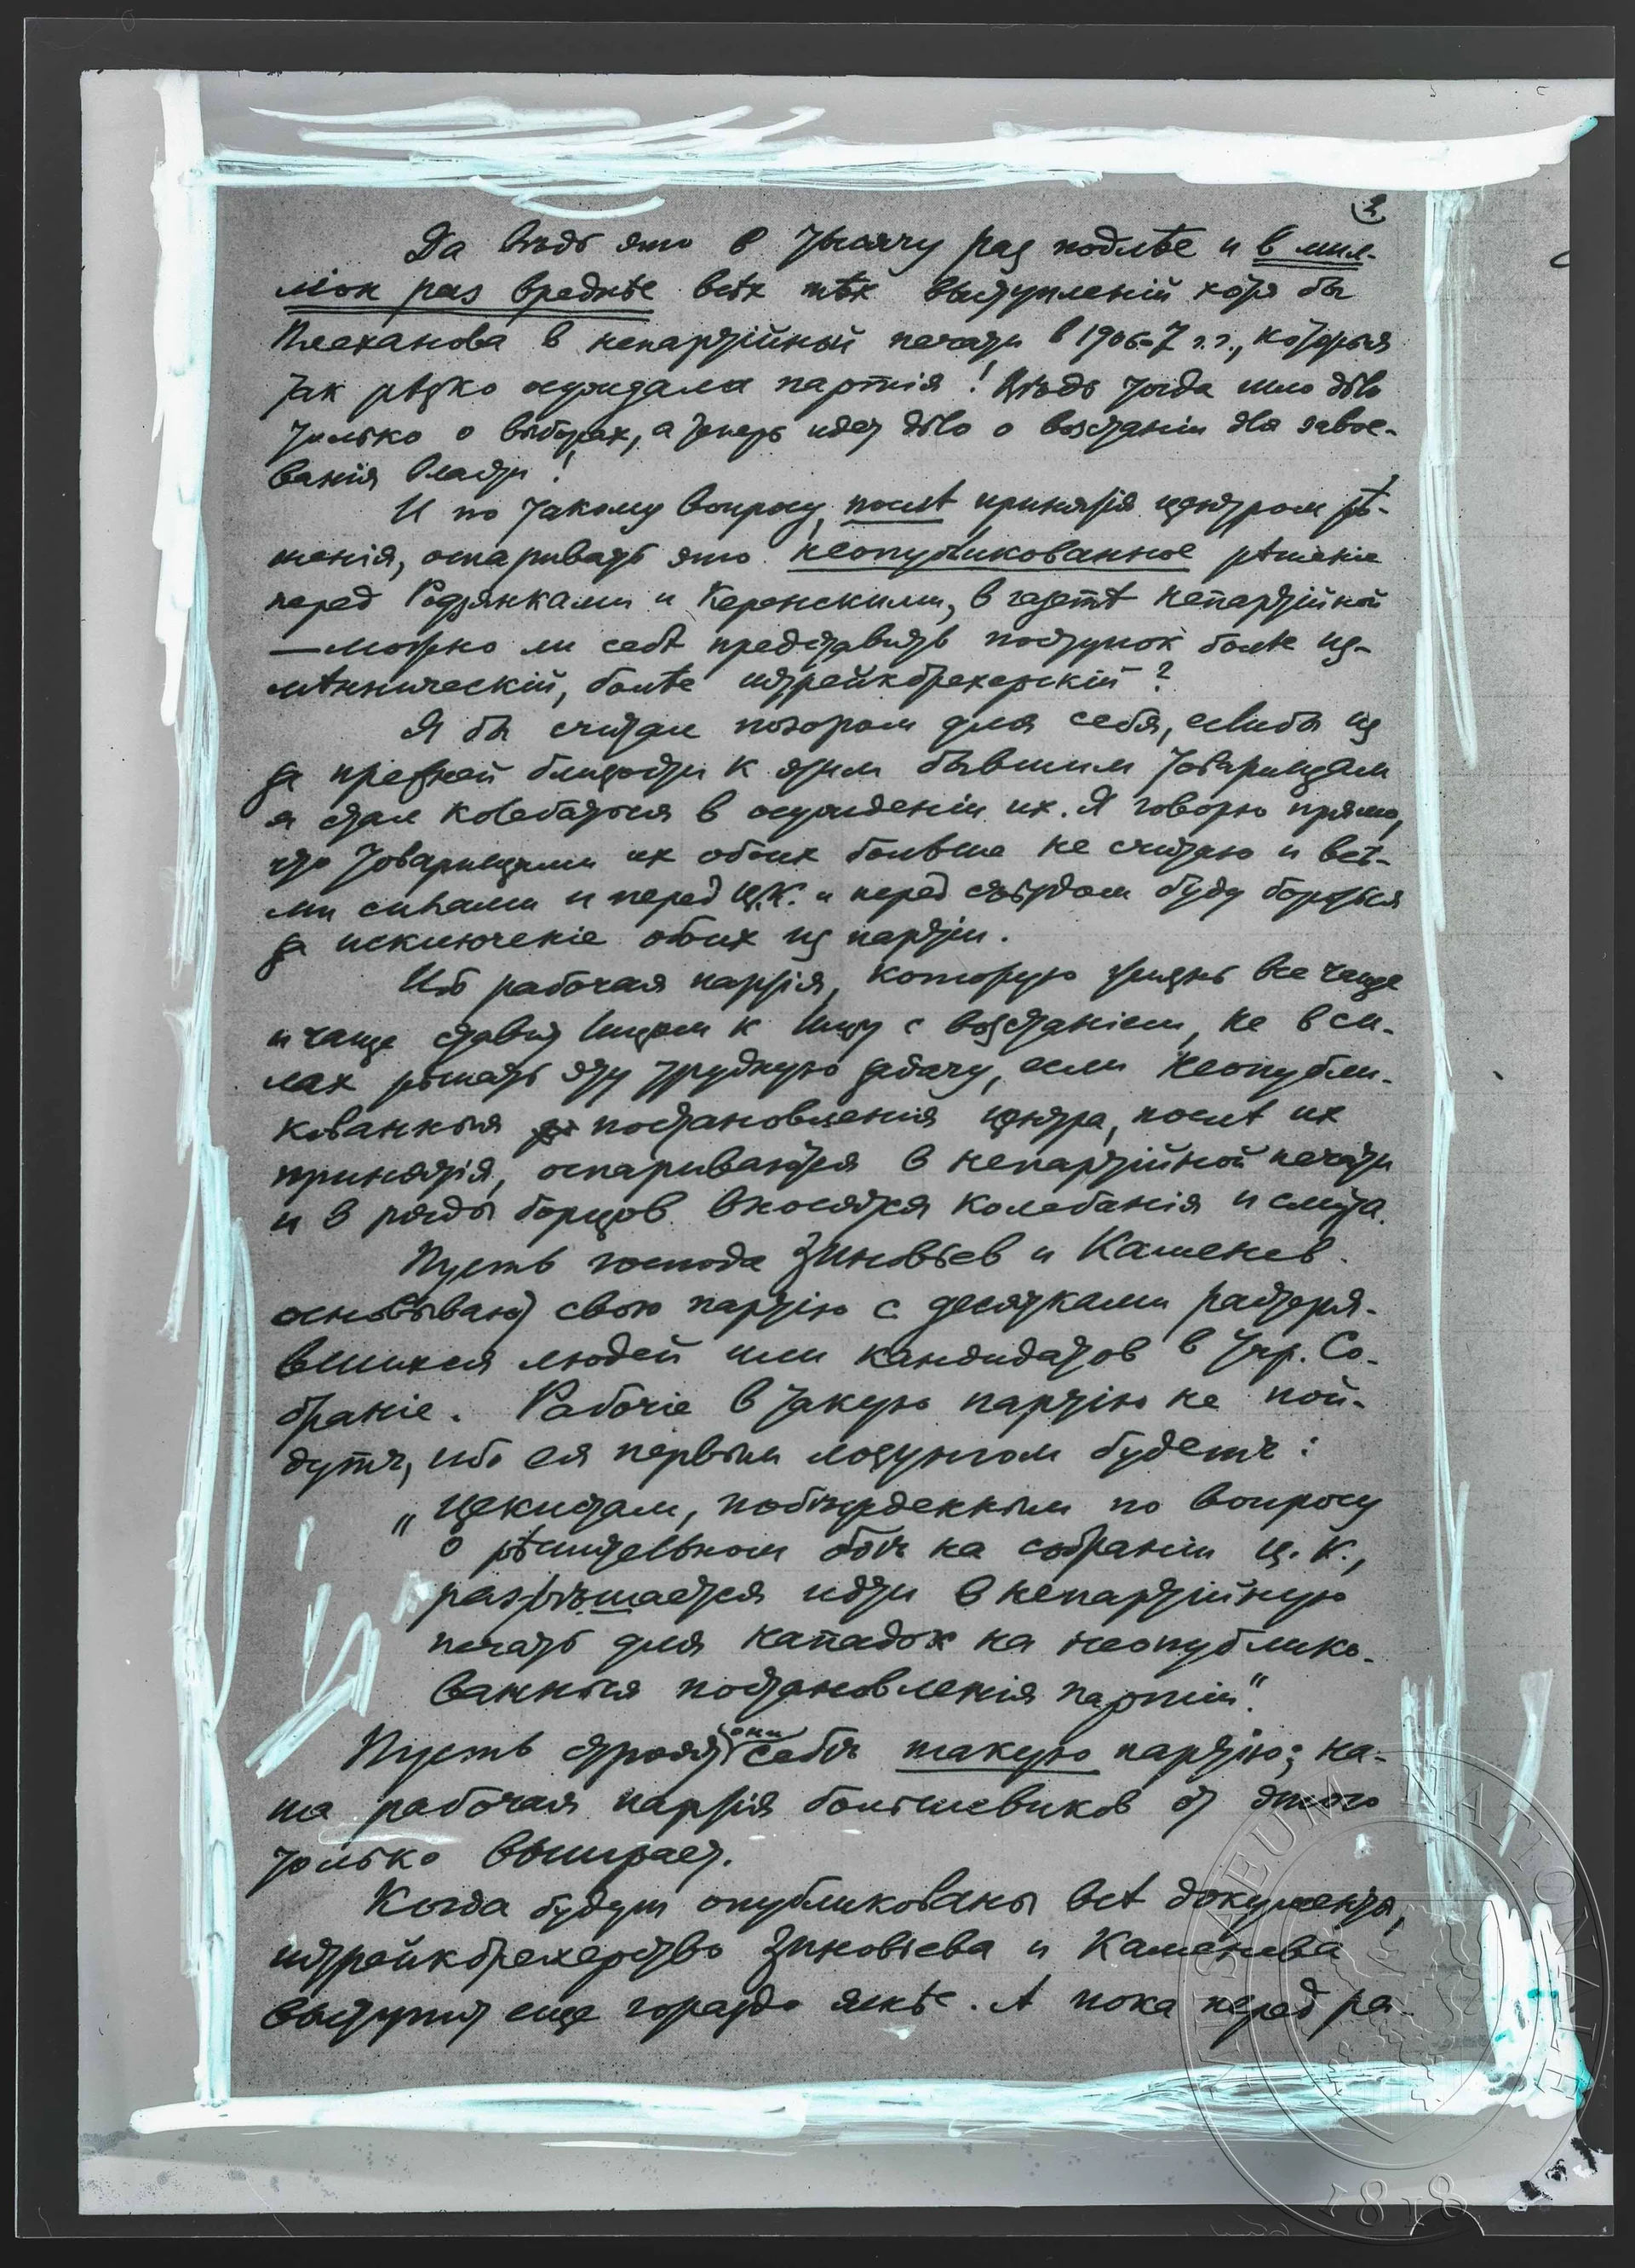 2
Да вѣдь это в тысячу раз подлѣе и в мил-
ліон раз вреднѣе всѣх тѣх выступленій хотя бы
Плеханова в непартійной печати в 1906-7 г.г., которыя
так рѣзко осуждала партія! Вѣдь тогда шло дѣло
только о выборах, а теперь идет дѣло о возстаніи для завое-
ванія власти!
И по такому вопросу, послѣ принятія центром рѣ-
шенія, оспаривать это неопубликованное рѣшеніе
перед Родзянками и Керенскими, в газетѣ непартійной
— можно ли себѣ представить поступок болѣе из-
мѣнническій, болѣе штрейкбрехерскій?
Я бы считал позором для себя, если бы из
за прежней близости к этим бывшим товарищам
я стал колебаться в осужденіи их. Я говорю прямо,
что товарищами их обоих больше не считаю и всѣ-
ми силами и перед Ц.К. и перед съѣздом буду бороться
за исключеніе обоих из партіи.
Ибо рабочая партія, которую жизнь все чаще
и чаще ставит лицом к лицу с возстаніем, не в си-
лах рѣшать эту трудную задачу, если неопубли-
кованныя постановленія центра, послѣ их
принятія, оспариваются в непартійной печати
и в ряды борцов вносятся колебанія и смута.
Пусть господа Зиновьев и Каменев
основывают свою партію с десятками растеря-
вшихся людей или кандидатов в Учр. Со-
браніе. Рабочіе в такую партію не пой-
дутъ, ибо ея первым лозунгом будетъ:
„Цекистам, побѣжденным по вопросу
о рѣшительном боѣ на собраніи Ц.К.,
разрѣшается идти в непартійную
печать для нападок на неопублико-
ванныя постановленія партіи“.
Пусть строят они себѣ такую партію; на-
ша рабочая партія большевиков от этого
только выиграет.
Когда будут опубликованы всѣ документы,
штрейкбрехерство Зиновьева и Каменева
выступит еще гораздо яснѣе. А пока перед ра-
MUSAEUM NATIONALE
1818